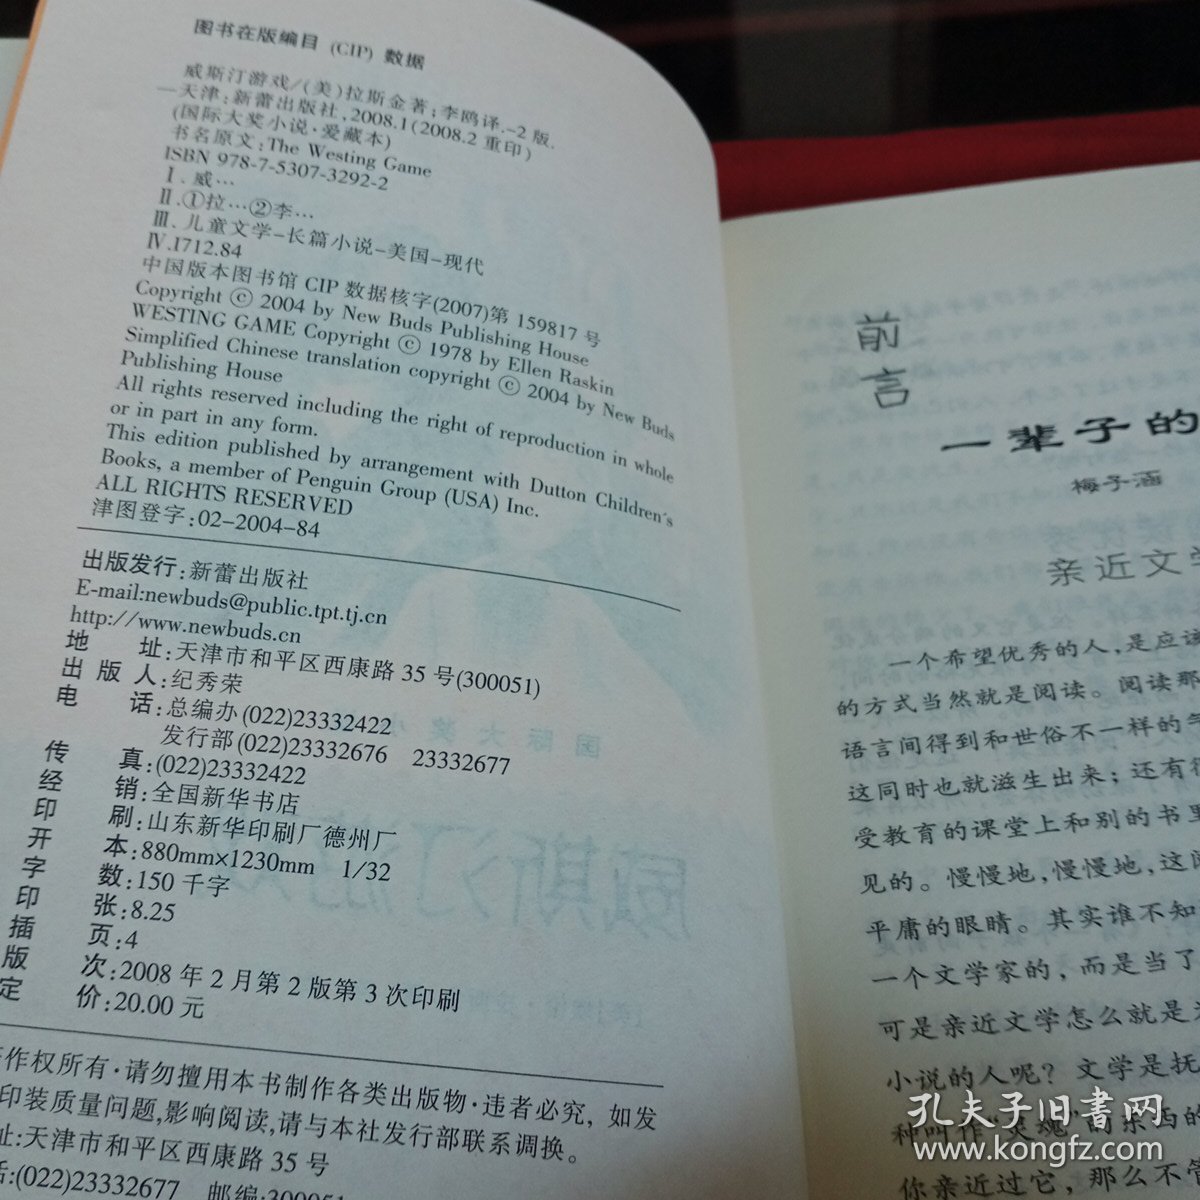 图书在版编目 (CIP) 数据
威斯汀游戏/(美)拉斯金著;李鸥译.-2 版.
—天津:新蕾出版社,2008.1(2008.2 重印)
(国际大奖小说·爱藏本)
书名原文:The Westing Game
ISBN 978-7-5307-3292-2
Ⅰ. 威…
Ⅱ.①拉…②李…
Ⅲ. 儿童文学-长篇小说-美国-现代
Ⅳ.I712.84
中国版本图书馆 CIP 数据核字(2007)第 159817 号
Copyright © 2004 by New Buds Publishing House
WESTING GAME Copyright © 1978 by Ellen Raskin
Simplified Chinese translation copyright © 2004 by New Buds
Publishing House
All rights reserved including the right of reproduction in whole
or in part in any form.
This edition published by arrangement with Dutton Children's
Books, a member of Penguin Group (USA) Inc.
ALL RIGHTS RESERVED
津图登字:02-2004-84
出版发行:新蕾出版社
E-mail:newbuds@public.tpt.tj.cn
http://www.newbuds.cn
地 址:天津市和平区西康路 35 号(300051)
出 版 人:纪秀荣
电 话:总编办(022)23332422
发行部(022)23332676 23332677
传 真:(022)23332422
经 销:全国新华书店
印 刷:山东新华印刷厂德州厂
开 本:880mm×1230mm 1/32
字 数:150 千字
印 张:8.25
插 页:4
版 次:2008 年 2 月第 2 版第 3 次印刷
定 价:20.00 元
作权所有·请勿擅用本书制作各类出版物·违者必究, 如发
印装质量问题,影响阅读,请与本社发行部联系调换。
址:天津市和平区西康路 35 号
话:(022)23332677 邮编:300051
前言
一辈子的
梅子涵
亲近文学
一个希望优秀的人,是应该
的方式当然就是阅读。阅读那
语言间得到和世俗不一样的
这同时也就滋生出来;还有得
受教育的课堂上和别的书里
见的。慢慢地,慢慢地,这阅
平庸的眼睛。其实谁不知
一个文学家的, 而是当了
可是亲近文学怎么就是
小说的人呢? 文学是抚
种叫作“灵魂”的东西的
你亲近过它, 那么不管
孔夫子旧书网
www.kongfz.com